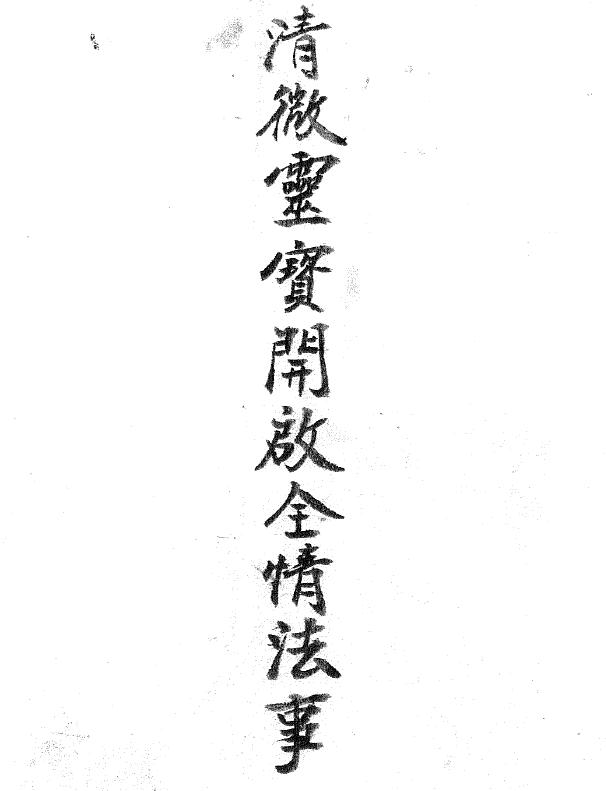 清微靈寳開啟全情法事